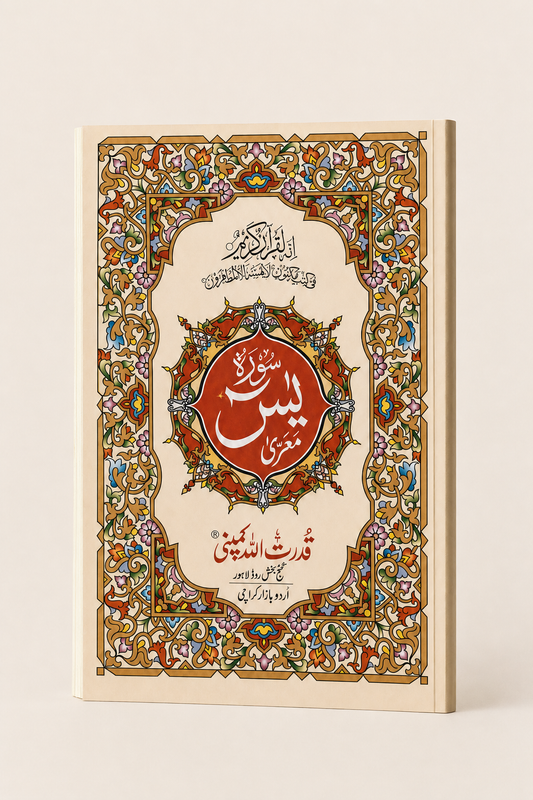 اِنَّهٗ لَقُرْاٰنٌ كَرِيْمٌ
فِیْ كِتٰبٍ مَّكْنُوْنٍ لَا يَمَسُّهٗٓ اِلَّا الْمُطَهَّرُوْنَ
سُورَة
يٰسٓ
مُعَرّیٰ
قُدرت اللہ کمپنی ®
گنج بخش روڈ لاہور
اُردو بازار کراچی